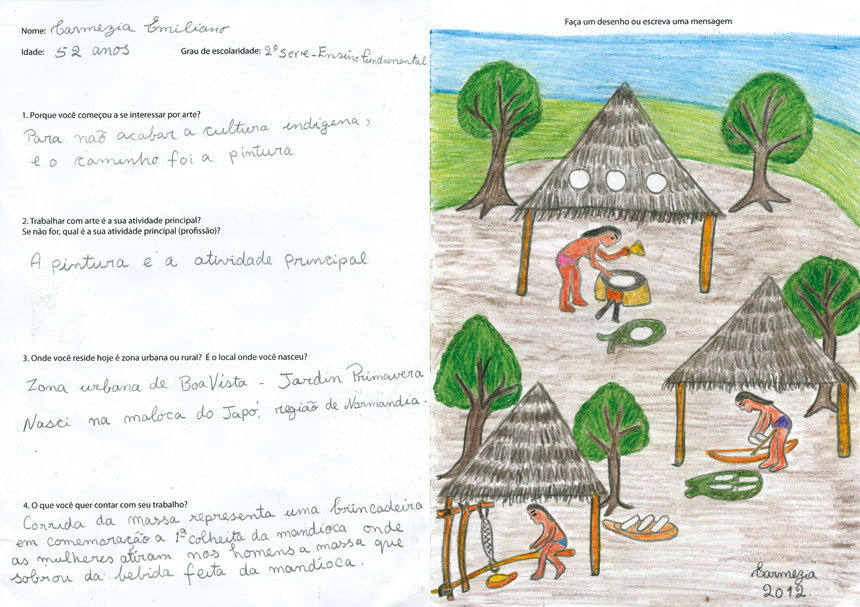 Nome: Carmezia Emiliano
Idade: 52 anos Grau de escolaridade: 2ª Serie - Ensino fundamental
1. Porque você começou a se interessar por arte?
Para não acabar a cultura indigena,
e o caminho foi a pintura
2. Trabalhar com arte é a sua atividade principal?
Se não for, qual é a sua atividade principal (profissão)?
A pintura é a atividade principal
3. Onde você reside hoje é zona urbana ou rural? É o local onde você nasceu?
Zona urbana de Boa Vista - Jardin Primavera
Nasci na maloca do Japó, região de Normandia.
4. O que você quer contar com seu trabalho?
Corrida da massa representa uma brincadeira
em comemoração a 1ª colheita da mandioca onde
as mulheres atiram nos homens a massa que
sobrou da bebida feita da mandioca.
Faça um desenho ou escreva uma mensagem
Carmezia
2012